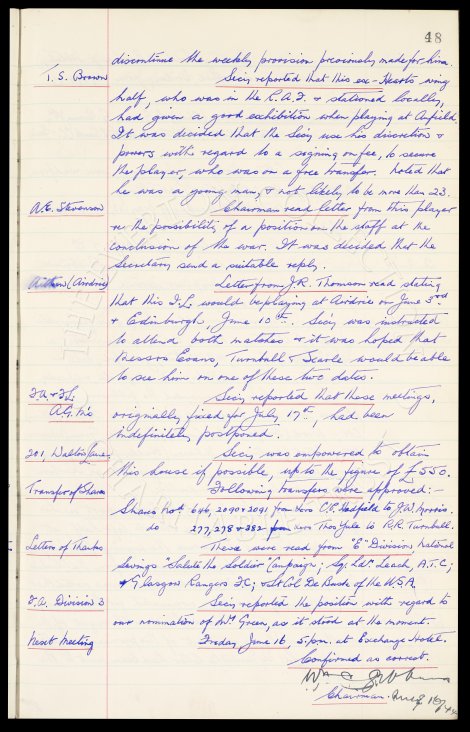 48
discontinue the weekly provision previously made for him.
T. S. Brown Secy reported that this ex-Hearts wing
half, who was in the R.A.F. & stationed locally,
had given a good exhibition when playing at Anfield.
It was decided that the Secy use his discretion &
powers with regard to a signing on fee, to secure
the player, who was on a free transfer. Noted that
he was a young man, & not likely to be more than 23.
A.E. Stevenson Chairman read letter from this player
re the possibility of a position on the staff at the
conclusion of the war. It was decided that the
Secretary send a suitable reply.
(Airdrie) Letter from J.R. Thomson read stating
that this I.L. would be playing at Airdrie on June 3rd
& Edinburgh, June 10th. Secy was instructed
to attend both matches & it was hoped that
Messrs Evans, Turnbull & Searle would be able
to see him on one of these two dates.
F.A. & F.L. Secy reported that these meetings,
A.G. M's originally fixed for July 17th, had been
indefinitely postponed.
201, Walton Lane. Secy was empowered to obtain
this house if possible, up to the figure of £550.
Transfer of Shares Following transfers were approved:-
Shares Nos. 646, 2090 & 2091 from C.R. Hadfield to J.W. Morris.
do 277, 278 & 382 from Thos Yule to R.R. Turnbull.
Letters of Thanks These were read from "E" Division, National
Savings "Salute the Soldier" Campaign; Sq. Ldr Leach, A.T.C;
& Glasgow Rangers F.C; & Lt Col De Bardo of the U.S.A.
F.A. Division 3 Secy reported the position with regard to
our nomination of Mr Green, as it stood at the moment.
Next Meeting Friday, June 16, 5.p.m. at Exchange Hotel.
Confirmed as correct.
Chairman.